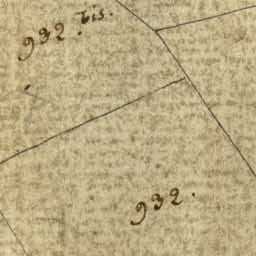 932. bis.
932.